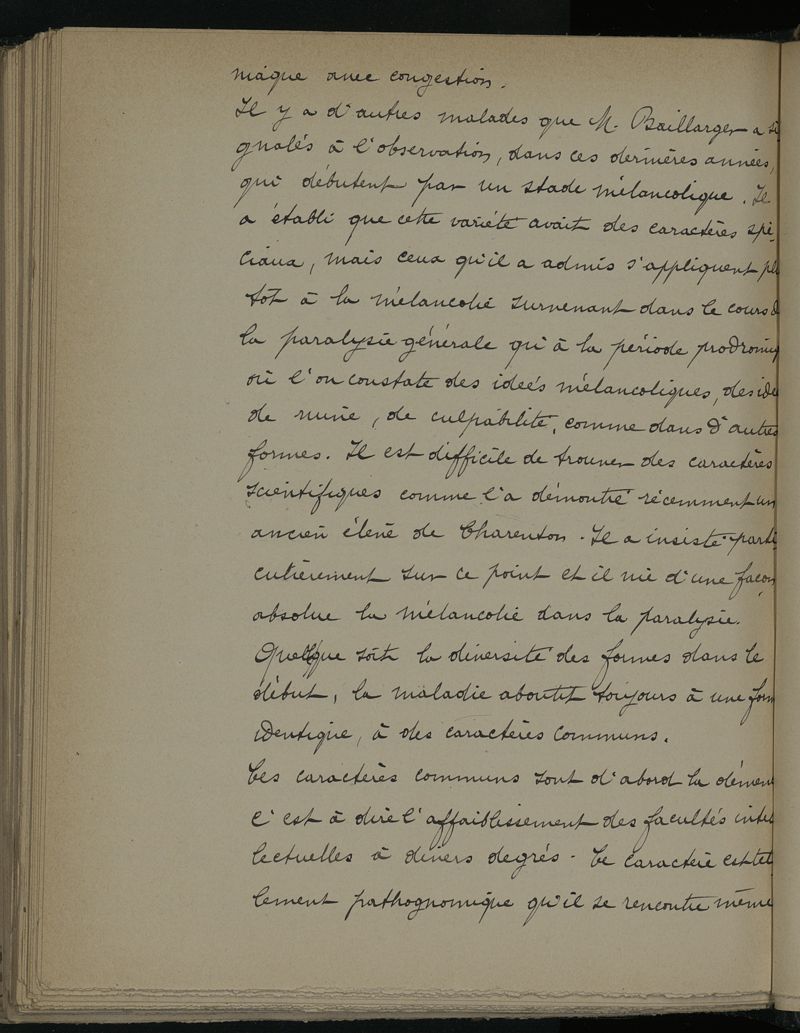 niaque avec congestion.
Il y a d'autres malades que M. Baillarger a si
gnalés à l'observation, dans ces dernières années,
qui débutent par un stade mélancolique. Il
a établi que cette variété avait des caractères spé
ciaux, mais ceux qu'il a admis s'appliquent plu
tôt à la mélancolie survenant dans le cours d
la paralysie générale qu'à la période prodromiq
où l'on constate des idées mélancoliques, des idé
de ruine, de culpabilité, comme dans d'autres
formes. Il est difficile de trouver des caractères
scientifiques comme l'a démontré récemment un
ancien élève de Charenton. Il a insisté parti
culièrement sur ce point et il nie d'une façon
absolue la mélancolie dans la paralysie.
Quelque soit la diversité des formes dans le
début, la maladie aboutit toujours à une form
identique, à des caractères communs.
Ces caractères communs sont d'abord la démen
c'est à dire l'affaiblissement des facultés intel
lectuelles à divers degrés. Ce caractère est tel
lement pathognomique qu'il se rencontre même